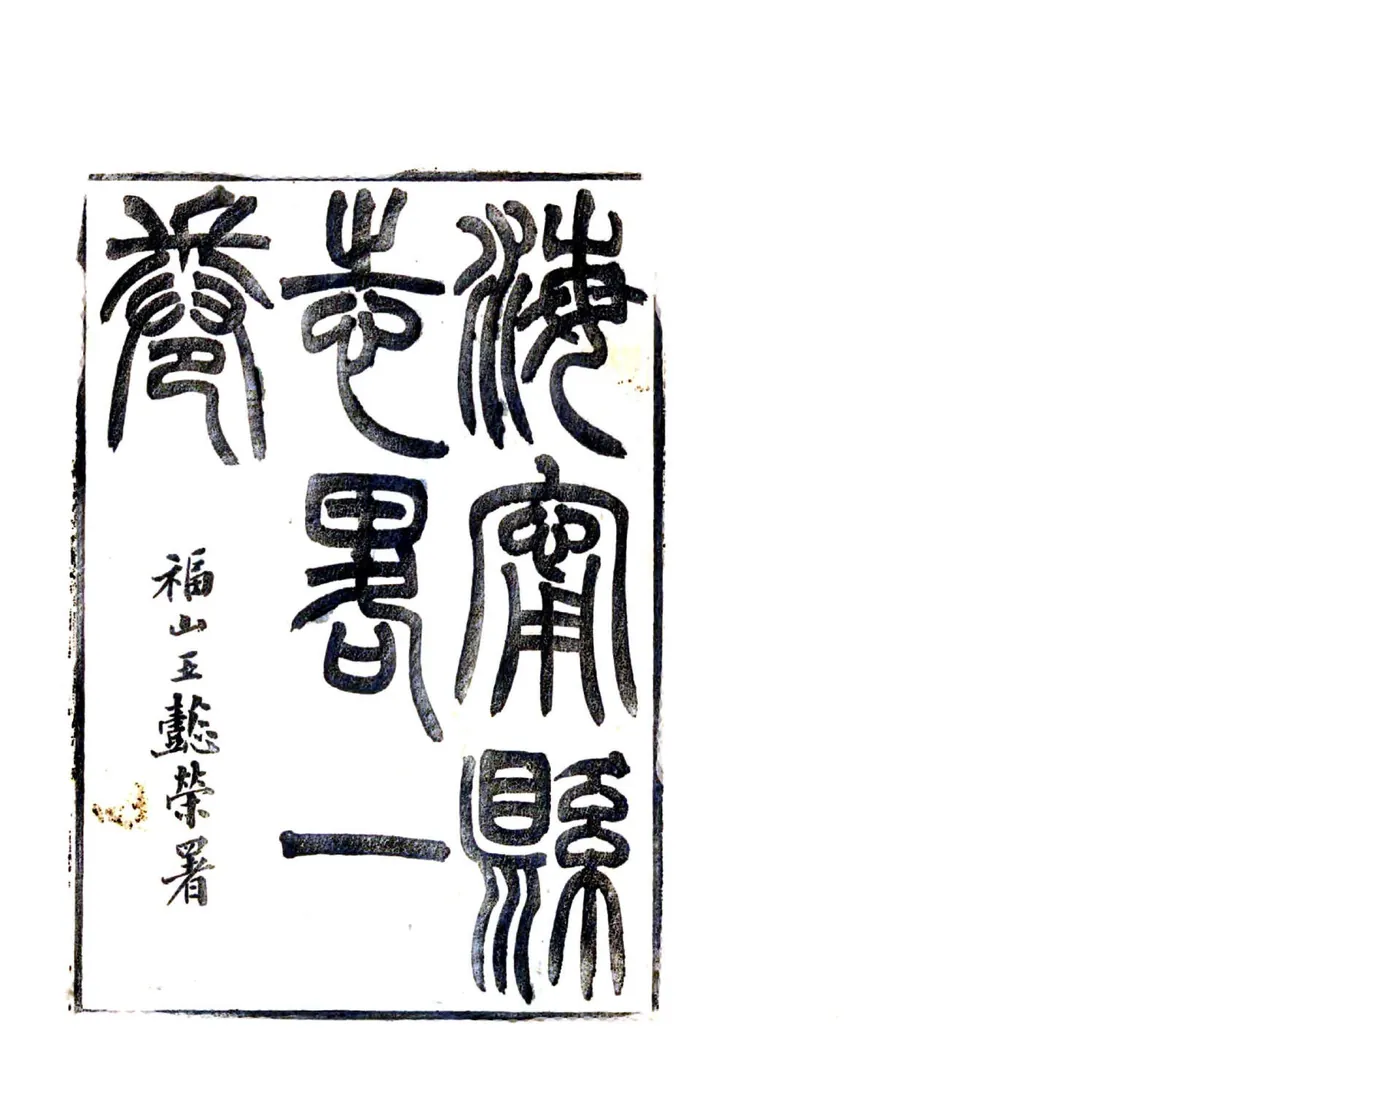 海甯縣
志畧一
卷
福山王懿榮署